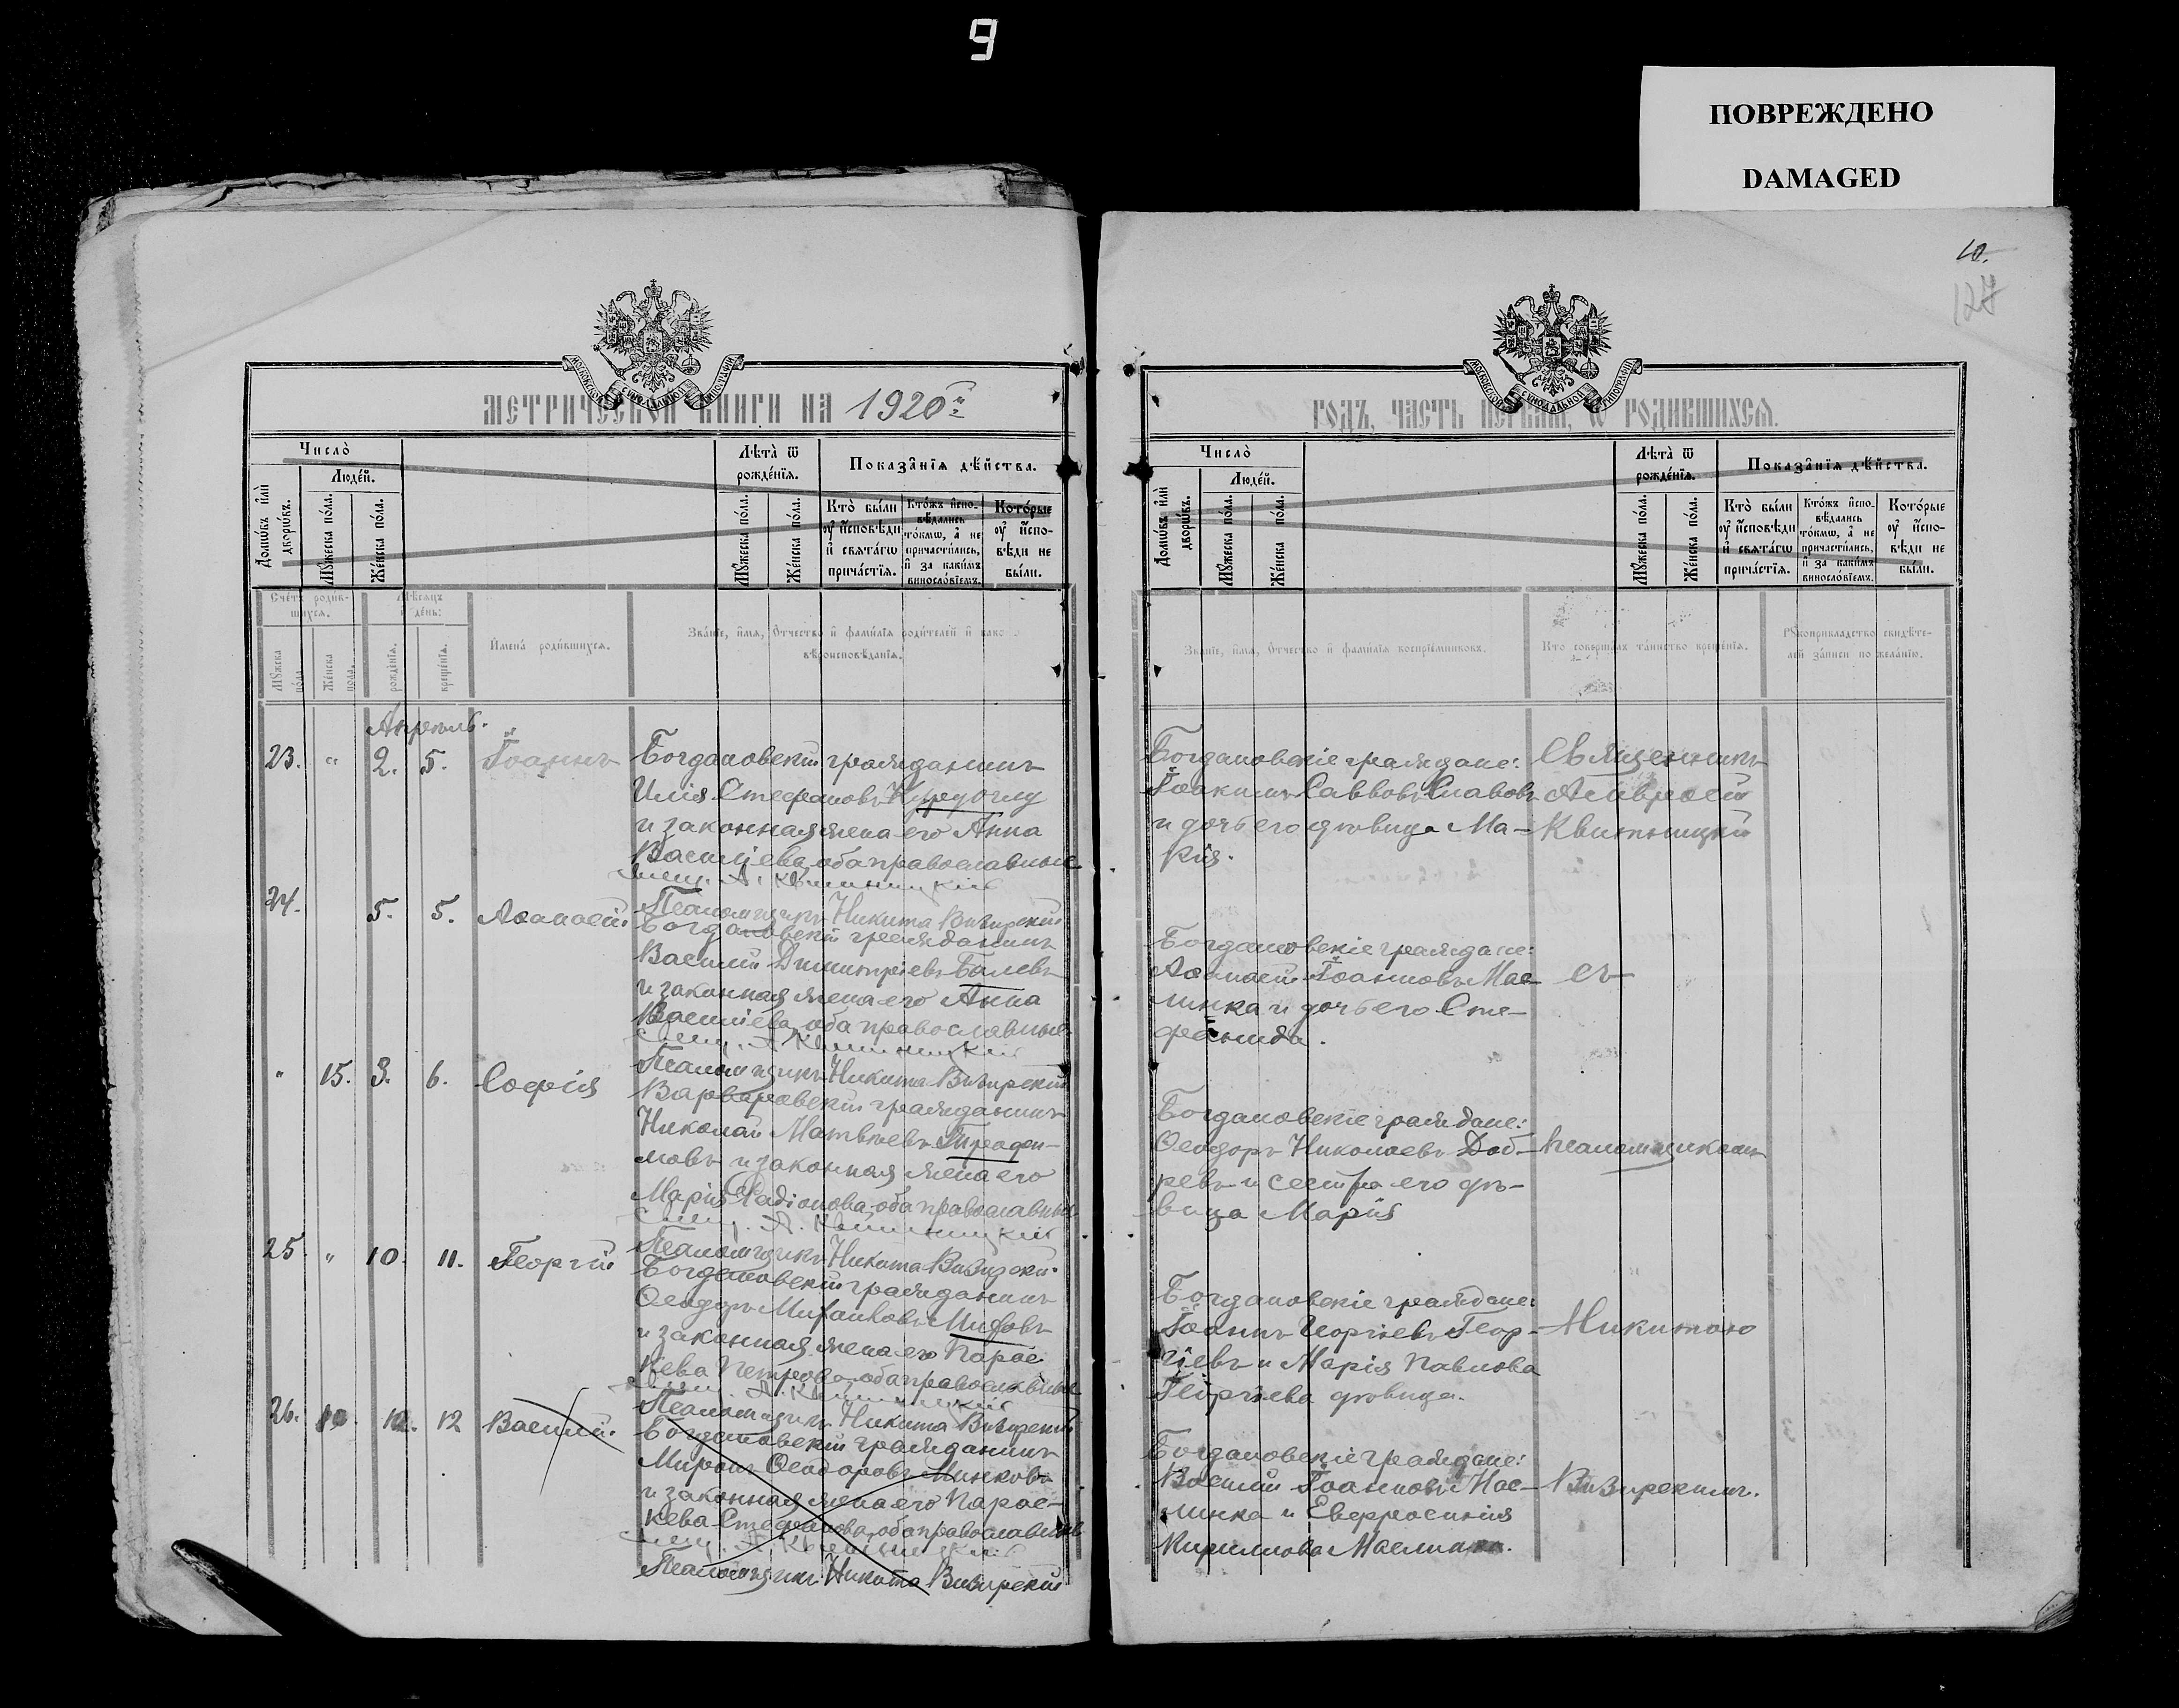 9
ПОВРЕЖДЕНО
DAMAGED
10.
МЕТРИЧЕСКОЙ КНИГИ НА 1920й
ГОДЪ, ЧАСТЬ ПЕРВАЯ, Ѡ РОДИВШИХСЯ.
Число̀
Людей.
Домѡвъ и҆лѝ дворѡвъ.
Мꙋжеска по́ла.
Же́нска по́ла.
Лѣта̀ ѿ рожде́нїѧ.
Мꙋжеска по́ла.
Же́нска по́ла.
Показа̑нїѧ дѣ́йства.
Кто̀ бы́ли ᲂу҆ и҆сповѣди и҆ свѧта́гѡ прича́стїѧ.
Кто́жъ и҆спо-
вѣдались
то́кмѡ, а҆ не
причасти́лись,
и҆ за каки́мъ
винословїемъ.
Кото́рые
ᲂу҆ и҆спо-
вѣди не
бы́ли.
Счетъ родив-
шихся.
Мѣсяцъ и день:
Мужеска пола.
Женска пола.
рожденія.
крещенія.
Имена родившихся.
Званіе, имя, отчество и фамилія родителей и како
вѣроисповѣданія.
Званіе, имя, отчество и фамилія воспріемниковъ.
Кто совершалъ таинство крещенія.
Рукоприкладство свидѣте-
лей записи по желанію.
Апрель.
23. " 2. 5. Іоаннъ
Богдановскій гражданинъ
Илія Стефановъ
и законная жена его Анна
Васильева, оба православные
Свящ. А. Квитницкій
Псаломщикъ Никита Визирскій
Богдановскіе граждане:
Іоакимъ Саввовъ Славовъ
и дочь его дѣвица Ма-
рія.
Священникъ
Амвросій
Квитницкій
24. 5. 5. Аѳанасій
Богдановскій гражданинъ
Василій Димитріевъ Балевъ
и законная жена его Анна
Васильева, оба православные
Свящ. А. Квитницкій
Псаломщикъ Никита Визирскій
Богдановскіе граждане:
Аѳанасій Іоанновъ Мас-
линка и дочь его Сте-
фанида.
съ
" 15. 3. 6. Софія
Варваровскій гражданинъ
Николай Матвѣевъ
и законная жена его
Марія Радіонова, оба православные
Свящ. А. Квитницкій
Псаломщикъ Никита Визирскій
Богдановскіе граждане:
Ѳеодоръ Николаевъ Доб-
ревъ и сестра его дѣ-
вица Марія
псаломщикомъ
25. " 10. 11. Георгій
Богдановскій гражданинъ
Ѳеодоръ
и законная жена его Парас-
кева Петрова, оба православные
Свящ. А. Квитницкій
Псаломщикъ Никита Визирскій
Богдановскіе граждане:
Іоаннъ Георгіевъ Геор-
гіевъ и Марія Павлова
Георгіева дѣвица.
Никитою
26. 12. 12 Василій.
Богдановскій гражданинъ
Миронъ Ѳеодоровъ Минковъ
и законная жена его Парас-
кева Стефанова, оба православные
Свящ. А. Квитницкій
Псаломщикъ Никита Визирскій
Богдановскіе граждане:
Василій Іоанновъ Мас-
линка и Евфросинія
Кириллова Маслинка.
Визирскимъ.